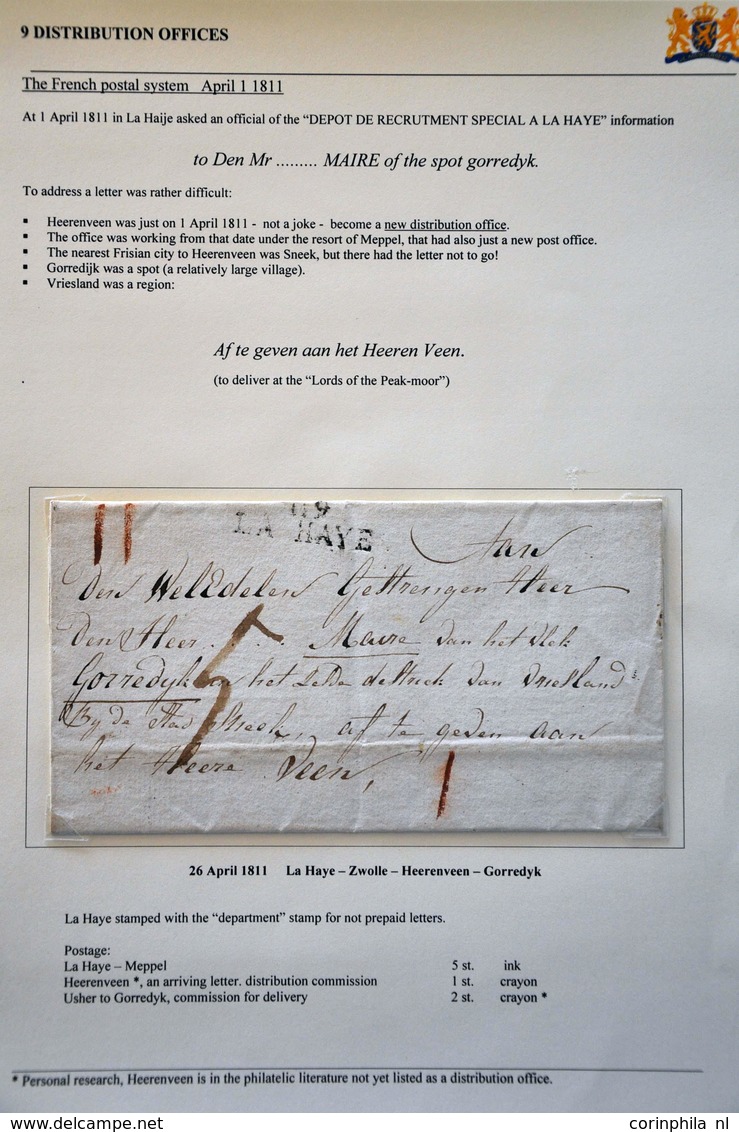 9 DISTRIBUTION OFFICES
The French postal system April 1 1811
At 1 April 1811 in La Haije asked an official of the “DEPOT DE RECRUTMENT SPECIAL A LA HAYE” information
to Den Mr ......... MAIRE of the spot gorredyk.
To address a letter was rather difficult:
▪ Heerenveen was just on 1 April 1811 - not a joke - become a new distribution office.
▪ The office was working from that date under the resort of Meppel, that had also just a new post office.
▪ The nearest Frisian city to Heerenveen was Sneek, but there had the letter not to go!
▪ Gorredijk was a spot (a relatively large village).
▪ Vriesland was a region:
Af te geven aan het Heeren Veen.
(to deliver at the “Lords of the Peak-moor”)
119
LA HAYE
Aan
Den WelEdelen Gestrengen Heer
Den Heer . . . . Maire van het vlek
Gorredyk in het district van Vriesland
By de Stad Sneek, af te geven aan
het Heere Veen,
5
26 April 1811 La Haye – Zwolle – Heerenveen – Gorredyk
La Haye stamped with the “department” stamp for not prepaid letters.
Postage:
La Haye – Meppel 5 st. ink
Heerenveen *, an arriving letter. distribution commission 1 st. crayon
Usher to Gorredyk, commission for delivery 2 st. crayon *
* Personal research, Heerenveen is in the philatelic literature not yet listed as a distribution office.
corinphila nl